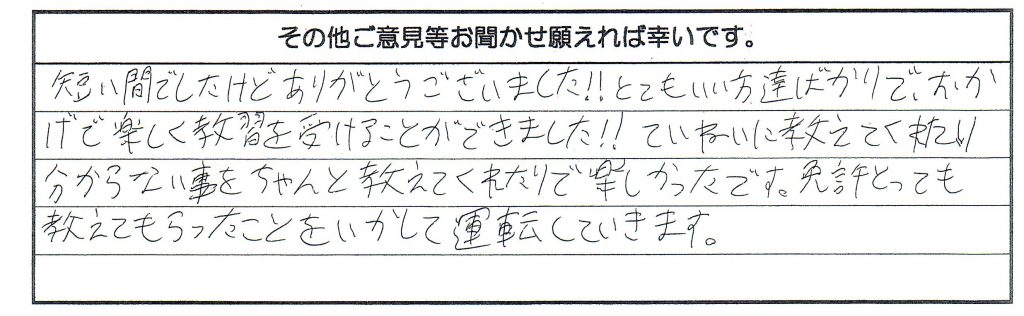 その他ご意見等お聞かせ願えれば幸いです。
短い間でしたけどありがとうございました!!とてもいい方達ばかりで、おか
げで楽しく教習を受けることができました!!ていねいに教えてくれたり
分からない事をちゃんと教えてくれたりで楽しかったです。免許とっても
教えてもらったことをいかして運転していきます。